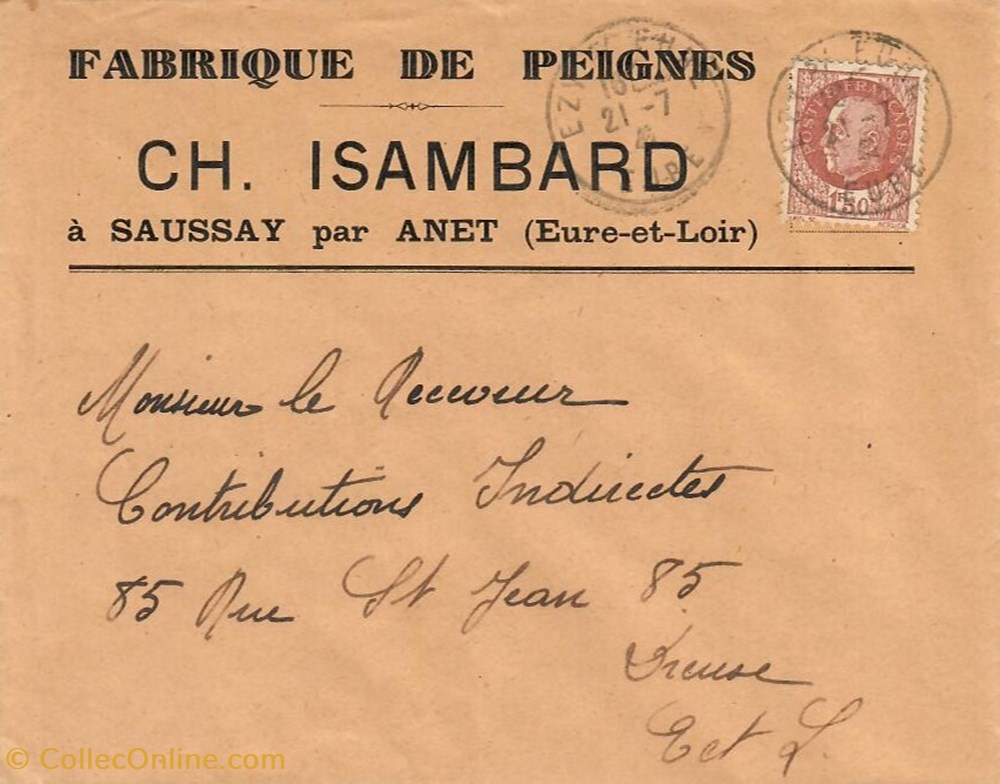 FABRIQUE DE PEIGNES
CH. ISAMBARD
à SAUSSAY par ANET (Eure-et-Loir)
EZY
21 -7
EURE
EURE
POSTES FRANÇAISES
1F50
Monsieur le Receveur
Contributions Indirectes
85 Rue St Jean 85
Dreuse
E et L.
© CollecOnline.com